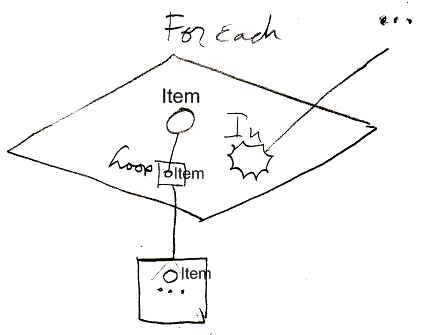 For Each
...
Item
In
Loop
Item
Item
...